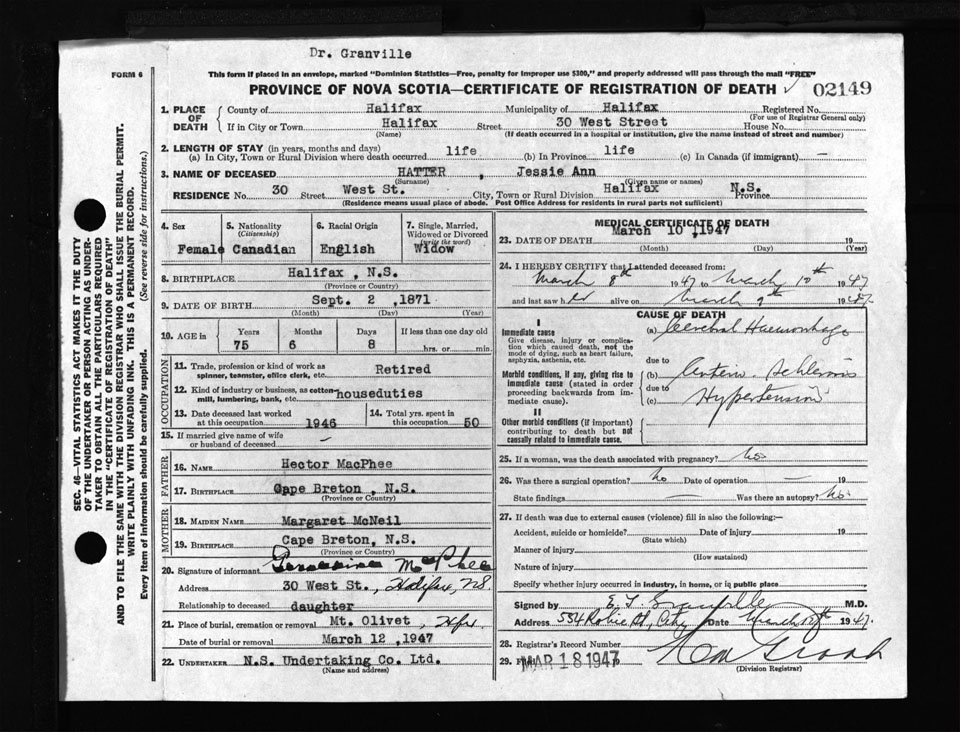 Dr. Granville
FORM 6
This form if placed in an envelope, marked "Dominion Statistics—Free, penalty for improper use $300," and properly addressed will pass through the mail "FREE"
PROVINCE OF NOVA SCOTIA—CERTIFICATE OF REGISTRATION OF DEATH 02149
SEC. 46—VITAL STATISTICS ACT MAKES IT THE DUTY
OF THE UNDERTAKER OR PERSON ACTING AS UNDER-
TAKER TO OBTAIN ALL THE PARTICULARS REQUIRED
IN THE "CERTIFICATE OF REGISTRATION OF DEATH"
AND TO FILE THE SAME WITH THE DIVISION REGISTRAR WHO SHALL ISSUE THE BURIAL PERMIT.
WRITE PLAINLY WITH UNFADING INK. THIS IS A PERMANENT RECORD.
Every item of information should be carefully supplied. (See reverse side for instructions.)
1. PLACE OF DEATH
County of Halifax Municipality of Halifax Registered No.
(For use of Registrar General only)
If in City or Town Halifax Street 30 West Street House No.
(Name) (If death occurred in a hospital or institution, give the name instead of street and number)
2. LENGTH OF STAY (in years, months and days)
(a) In City, Town or Rural Division where death occurred life (b) In Province life (c) In Canada (if immigrant) —
3. NAME OF DECEASED HATTER , Jessie Ann
(Surname) (Given name or names)
RESIDENCE No. 30 Street West St. City, Town or Rural Division Halifax N.S. Province
(Residence means usual place of abode. Post Office Address for residents in rural parts not sufficient)
4. Sex
Female
5. Nationality
(Citizenship)
Canadian
6. Racial Origin
English
7. Single, Married,
Widowed or Divorced
(write the word)
Widow
8. BIRTHPLACE Halifax , N.S.
(Province or Country)
9. DATE OF BIRTH Sept. 2 ,1871
(Month) (Day) (Year)
10. AGE in
Years Months Days If less than one day old
75 6 8 hrs. or min.
OCCUPATION
11. Trade, profession or kind of work as
spinner, teamster, office clerk, etc. Retired
12. Kind of industry or business, as cotton-
mill, lumbering, bank, etc. houseduties
13. Date deceased last worked
at this occupation 1946
14. Total yrs. spent in
this occupation 50
15. If married give name of wife
or husband of deceased —
FATHER
16. NAME Hector MacPhee
17. BIRTHPLACE Cape Breton , N.S.
(Province or Country)
MOTHER
18. MAIDEN NAME Margaret McNeil
19. BIRTHPLACE Cape Breton, N.S.
(Province or Country)
20. Signature of informant MacPhee
Address 30 West St., Halifax, NS.
Relationship to deceased daughter
21. Place of burial, cremation or removal Mt. Olivet, Hfx
Date of burial or removal March 12 ,1947
22. UNDERTAKER N.S. Undertaking Co. Ltd.
(Name and address)
MEDICAL CERTIFICATE OF DEATH
23. DATE OF DEATH March 10 ,1947 19
(Month) (Day) (Year)
24. I HEREBY CERTIFY that I attended deceased from:
March 8th 1947 to March 10th 1947
and last saw her alive on March 9th 1947
CAUSE OF DEATH
I
Immediate cause
Give disease, injury or complica-
tion which caused death, not the
mode of dying, such as heart failure,
asphyxia, asthenia, etc.
(a) Cerebral Haemorrhage
due to
Morbid conditions, if any, giving rise to
immediate cause (stated in order
proceeding backwards from im-
mediate cause).
(b) Arterio. Schlerosis
due to
(c) Hypertension
II
Other morbid conditions (if important)
contributing to death but not
causally related to immediate cause.
25. If a woman, was the death associated with pregnancy? No.
26. Was there a surgical operation? No Date of operation —
State findings — Was there an autopsy? No.
27. If death was due to external causes (violence) fill in also the following:—
Accident, suicide or homicide? Date of injury 19
(State which)
Manner of injury
(How sustained)
Nature of injury
Specify whether injury occurred in industry, in home, or in public place
Signed by E T Granville M.D.
Address 554 Robie St, City Date March 12th 1947.
28. Registrar's Record Number
29. MAR 18 1947
(Division Registrar)